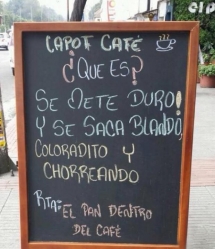 CAPOT CAFÉ
¿QUE ES?
SE METE DURO!
Y SE SACA BLANDO,
COLORADITO Y
CHORREANDO
RTA: EL PAN DENTRO
DEL CAFÉ